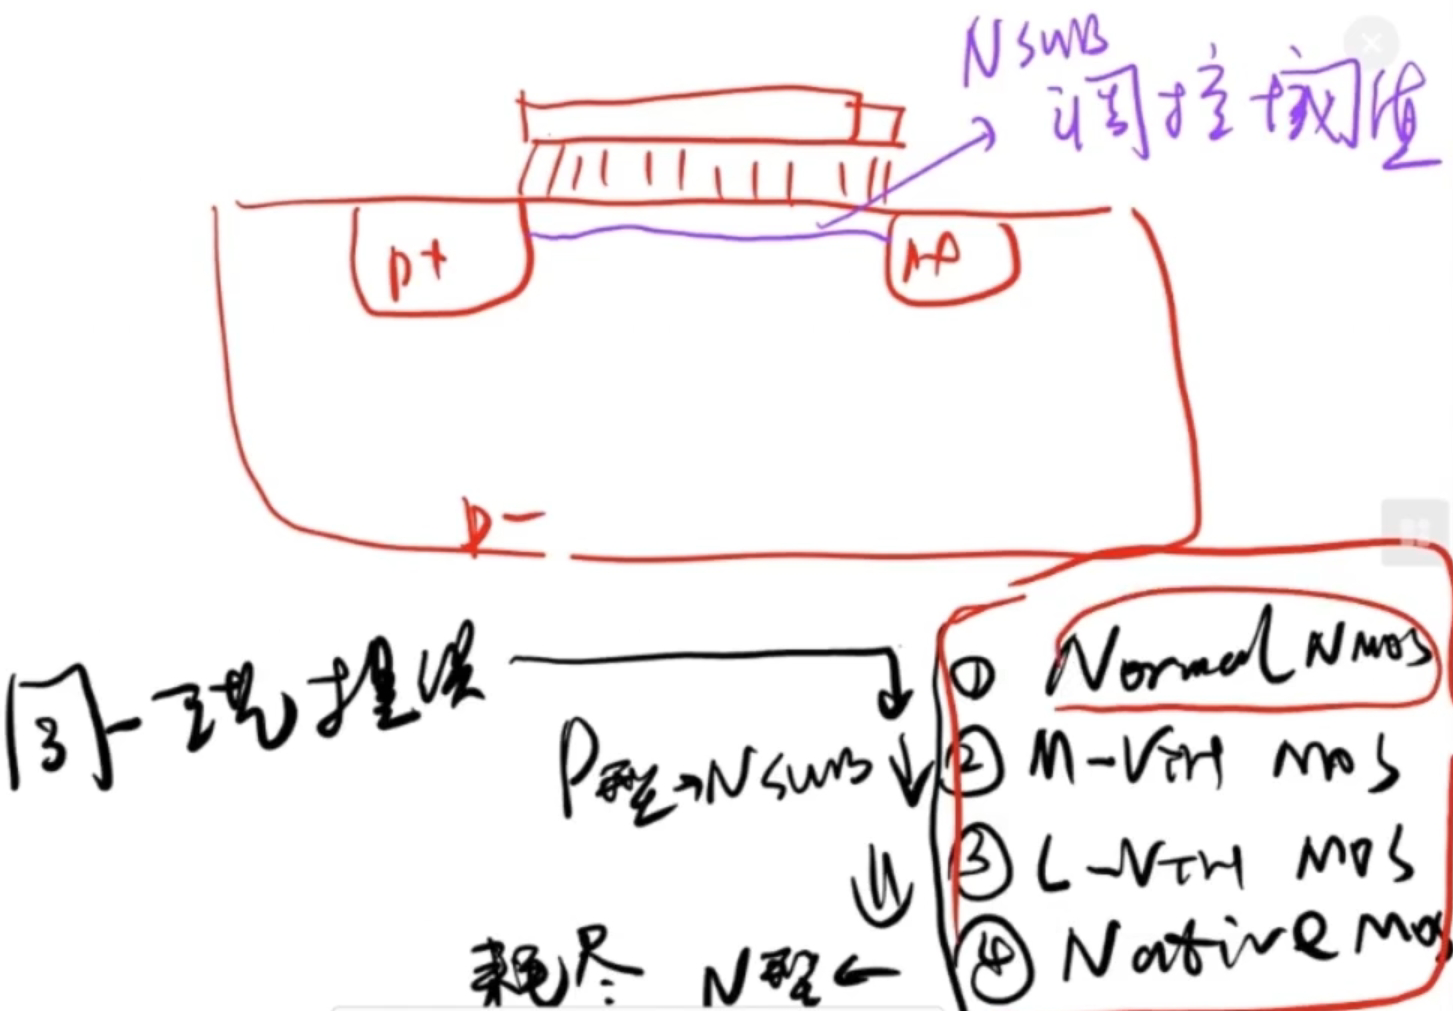 NSUB
调控阈值
P+
P-
同一现掺误
① Normal NMOS
P型→NSUB↓ ② M-VTH MOS
③ L-VTH MOS
耗尽 N型← ④ Native MOS